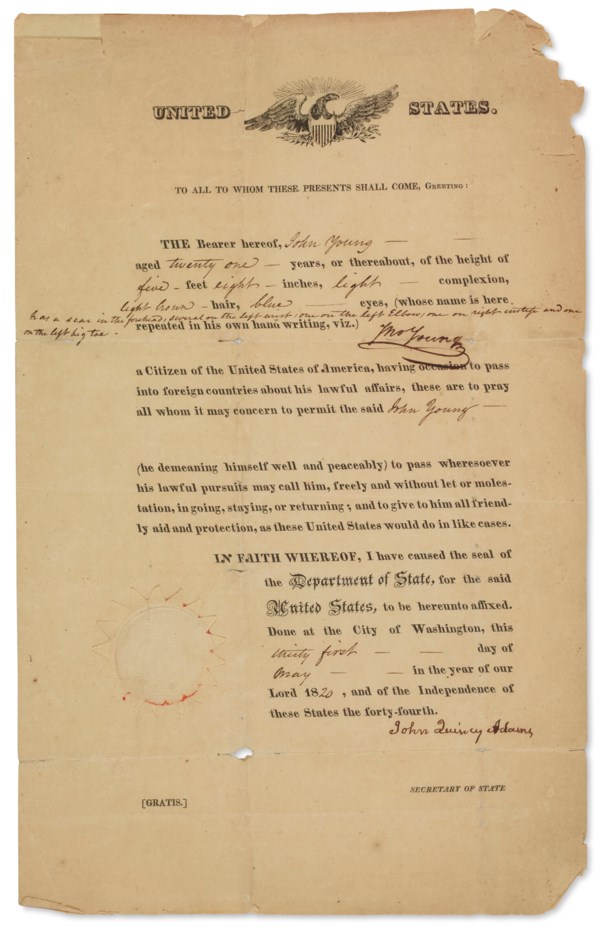 UNITED STATES.
TO ALL TO WHOM THESE PRESENTS SHALL COME, GREETING:
THE Bearer hereof, John Young
aged twenty one years, or thereabout, of the height of
five feet eight inches, light complexion,
light brown hair, blue eyes, (whose name is here
has a scar in the forehead; several on the left wrist; one on the left Elbow; one on right instep and one
on the left big toe
repeated in his own hand writing, viz.)
Jno Young
a Citizen of the United States of America, having occasion to pass
into foreign countries about his lawful affairs, these are to pray
all whom it may concern to permit the said John Young
(he demeaning himself well and peaceably) to pass wheresoever
his lawful pursuits may call him, freely and without let or moles-
tation, in going, staying, or returning; and to give to him all friend-
ly aid and protection, as these United States would do in like cases.
IN FAITH WHEREOF, I have caused the seal of
the Department of State, for the said
United States, to be hereunto affixed.
Done at the City of Washington, this
thirty first day of
May in the year of our
Lord 1820, and of the Independence of
these States the forty-fourth.
John Quincy Adams
SECRETARY OF STATE
[GRATIS.]